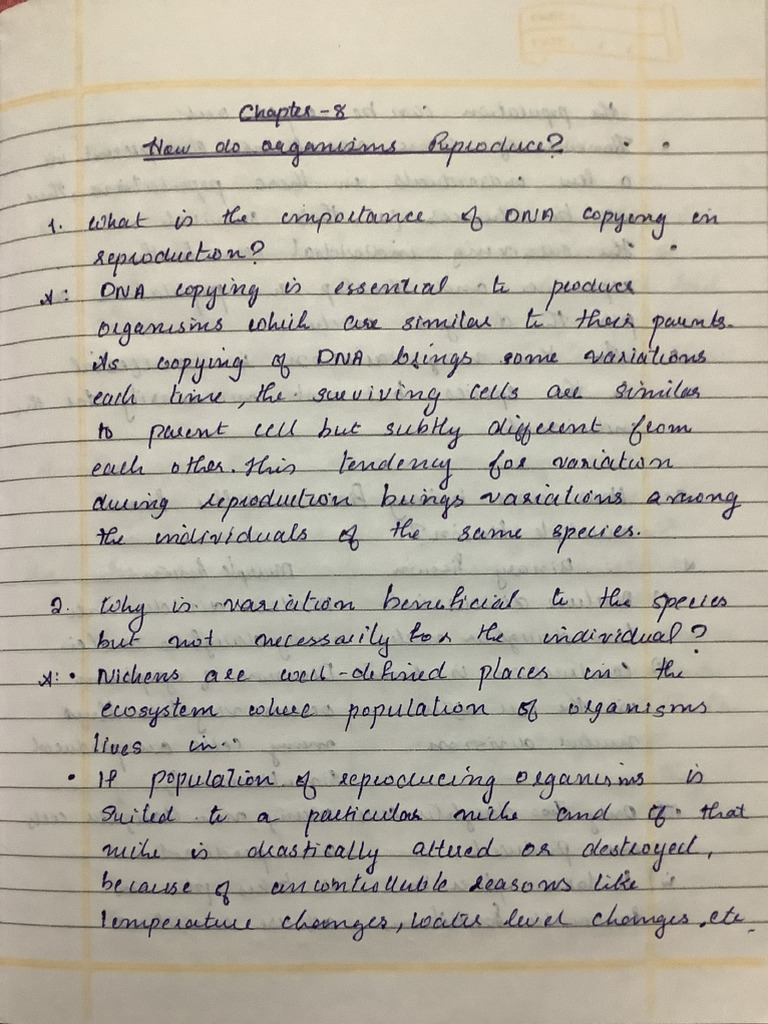 Chapter-8
How do organisms Reproduce?
1. What is the importance of DNA copying in
reproduction?
A: DNA copying is essential to produce
organisms which are similar to their parents.
As copying of DNA brings some variations
each time, the surviving cells are similar
to parent cell but subtly different from
each other. This tendency for variation
during reproduction brings variations among
the individuals of the same species.
2. Why is variation beneficial to the species
but not necessarily for the individual?
A: • Nichens are well-defined places in the
ecosystem where population of organisms
lives in.
• If population of reproducing organisms is
suited to a particular niche and if that
niche is drastically altered or destroyed,
because of uncontrollable reasons like
temperature changes, water level changes, etc.